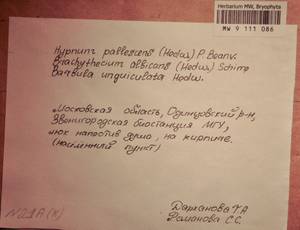 Herbarium MW, Bryophyta
MW 9 111 086
Hypnum pallescens (Hedw.) P. Beauv.
Brachythecium albicans (Hedw.) Schimp
Barbula unguiculata Hedw.
Московская область, Одинцовский р-н,
Звенигородская биостанция МГУ,
люк напротив дома, на кирпиче.
(населенный пункт)
N21А (К)
Романова С.С.